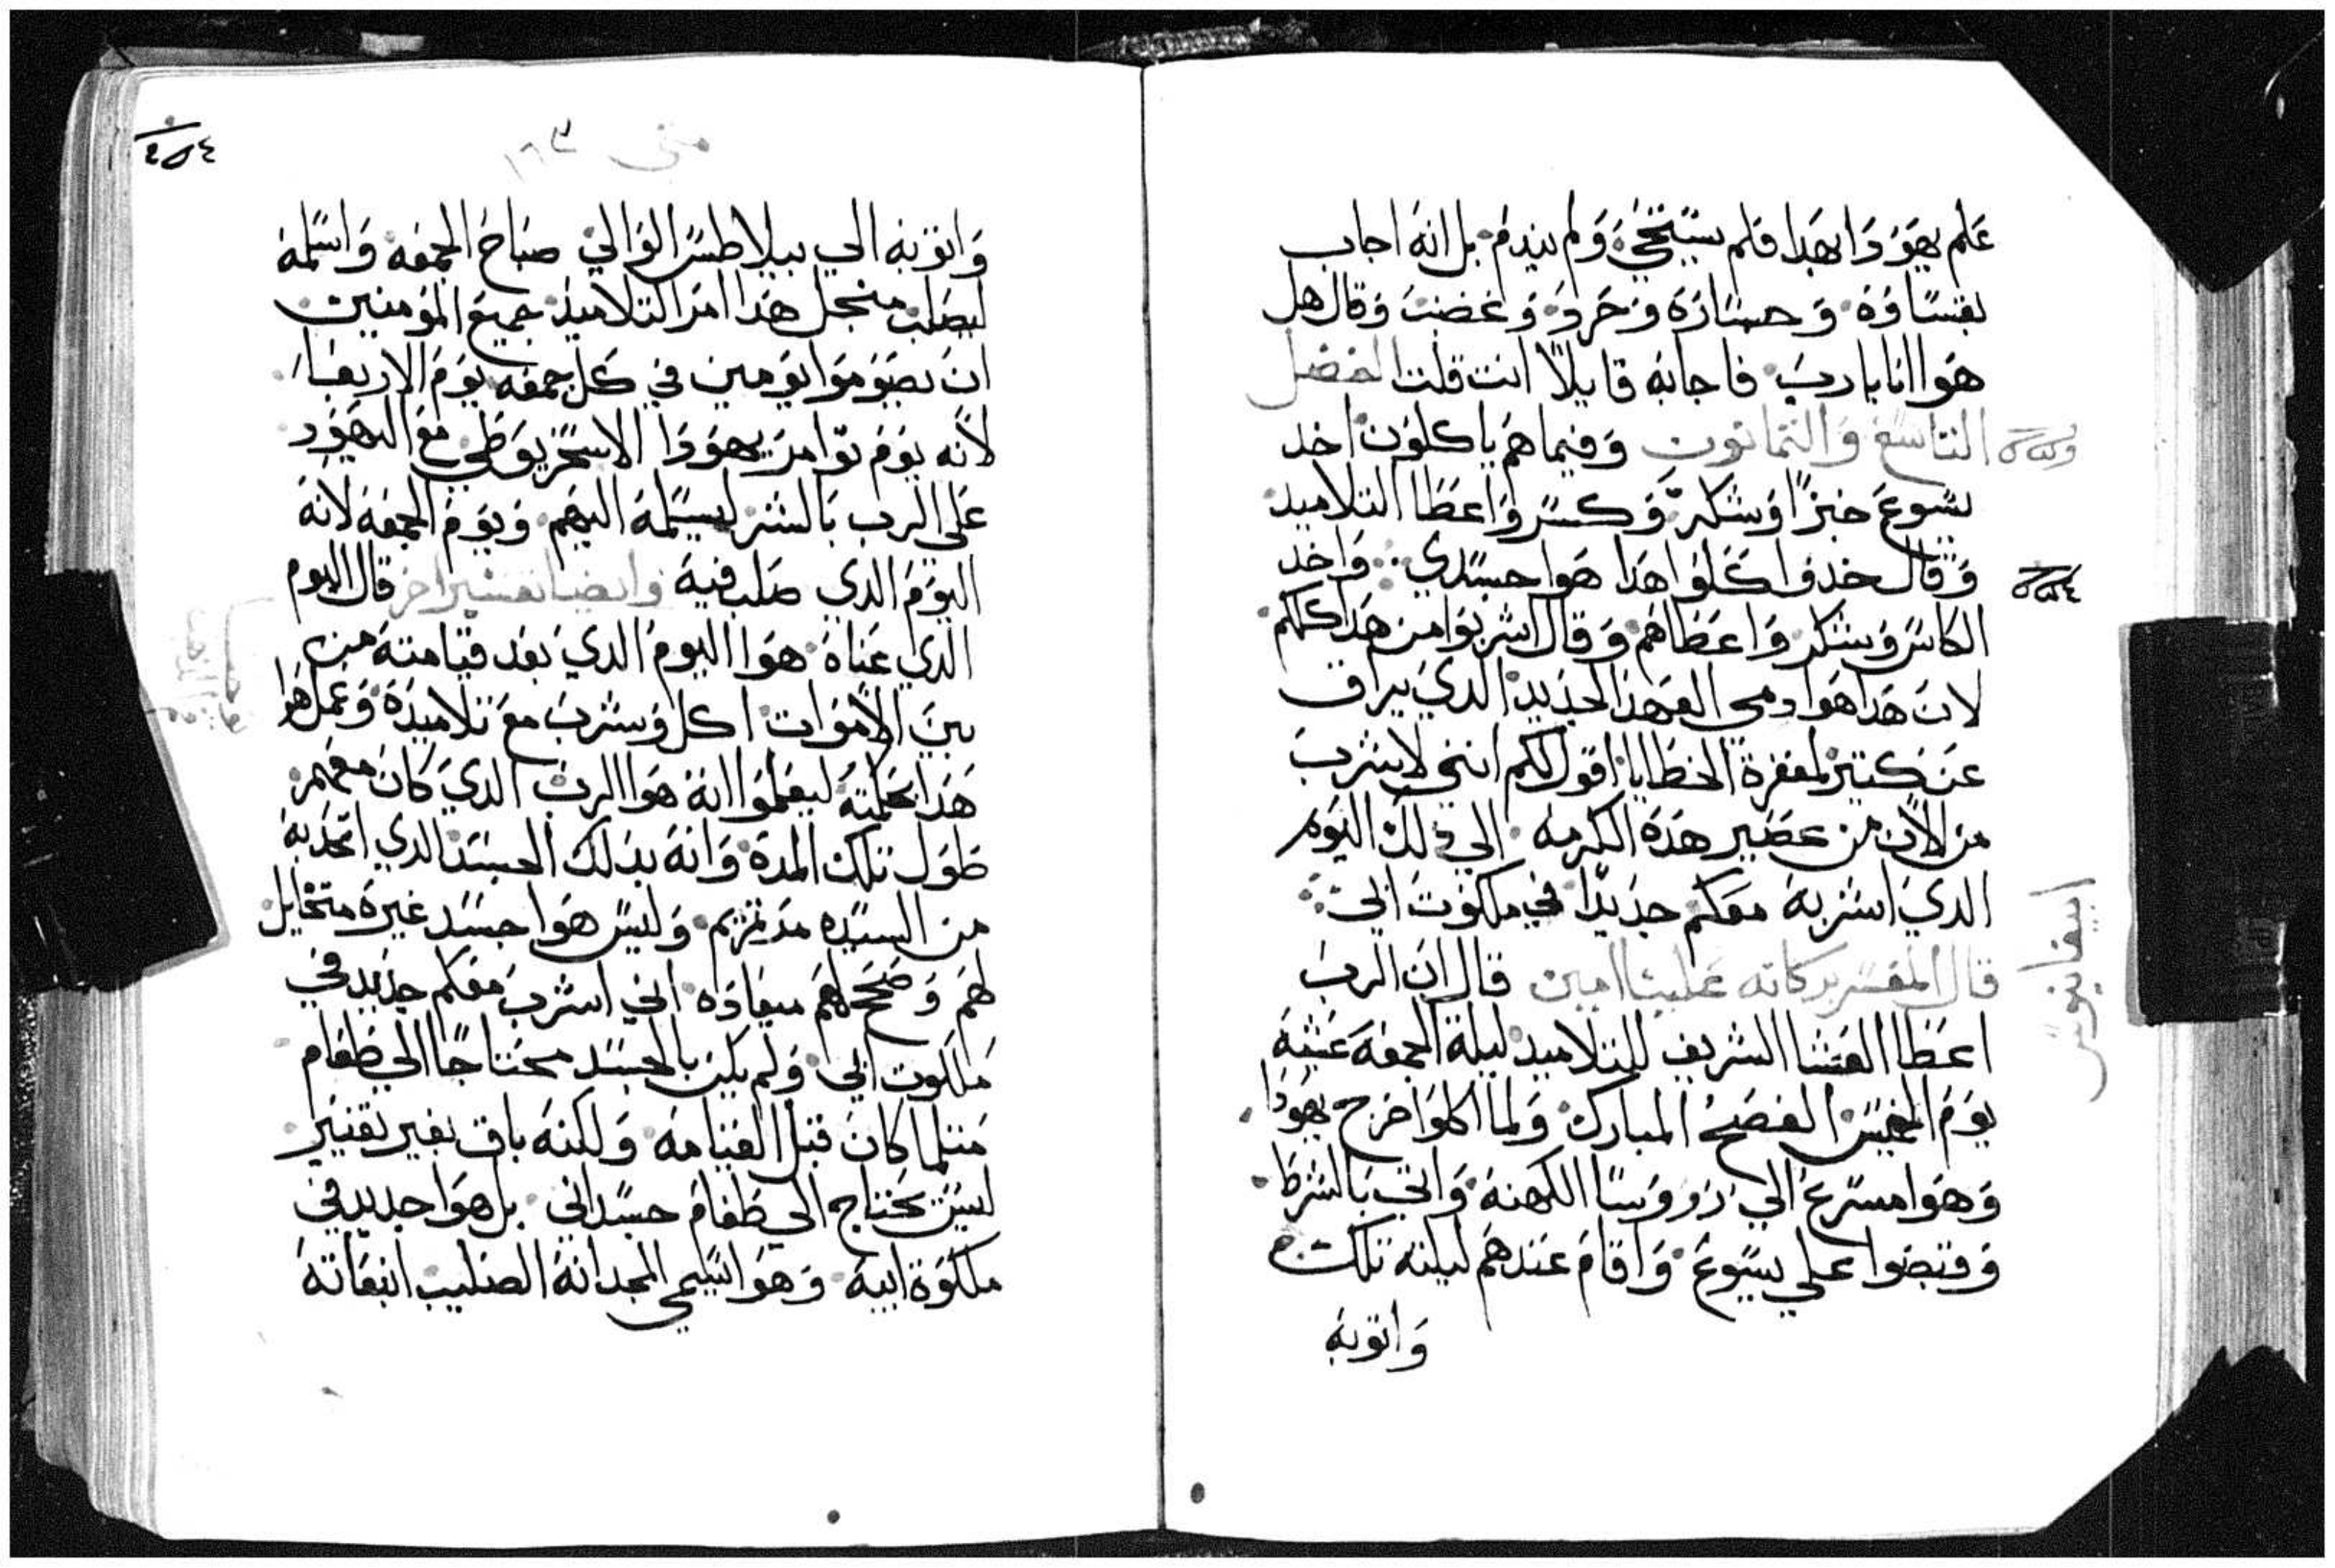 علم يهودا بهدا فلم يستحي ولم يندم بل انه اجاب
بقساوه وجساره وحرد وغضب وقال هل
هوا انا يا رب فاجابه قايلا انت قلت الفصل
التاسع والتمانون وفيما هم ياكلون اخد
يسوع خبزا وشكر وكسر واعطا التلاميد
وقال خدوا كلوا هدا هوا جسدي واخد
الكاس وشكر واعطاهم وقال اشربوا من هدا كلكم
لان هدا هوا دمي العهد الجديد الدي يراق
عن كتير لمغفرة الخطايا اقول لكم انني لا اشرب
من الان من عصير هده الكرمه الي دلك اليوم
الدي اشربه معكم جديدا في ملكوت ابي
قال المفسر بركاته علينا امين قال ان الرب
اعطا العشا الشريف للتلاميد ليلة الجمعه عشية
يوم الخميس الفصح المبارك ولما اكلوا خرج يهودا
وهوا مسرع الي رووسا الكهنه واتي بالشرط
وقبضوا علي يسوع واقام عندهم ليلته تلك
واتوبه
متي ١٦٣
واتوبه الي بيلاطس الوالي صباح الجمعه واسلمه
ليصلب منجل هدا امر التلاميد جميع المومنين
ان يصوموا يومين في كل جمعه يوم الاربعا
لانه يوم توامر يهودا الاسخريوطي مع اليهود
علي الرب بالشر ليسلمه اليهم ويوم الجمعه لانه
اليوم الدي صلب فيه وايضا تفسير اخر قال اليوم
الدي عناه هوا اليوم الدي بعد قيامته من
بين الاموات اكل وشرب مع تلاميده وعمل هوا
هدا بحكمته ليعلموا انه هوا الرب الدي كان معهم
طول تلك المده وانه بدلك الجسد الدي اتخد به
من السيده مرتمريم وليس هوا جسد غيره متخايل
لهم وصحح لهم ميعاده اني اشرب معكم جديد في
ملكوت ابي ولم يكن بالجسد محتاجا الي طعام
متلما كان قبل القيامه ولكنه باق بغير تغيير
ليس يحتاج الي طعام جسداني بل هوا جديد في
ملكوة ابيه وهوا يسمي المجد انه الصليب انبعاته